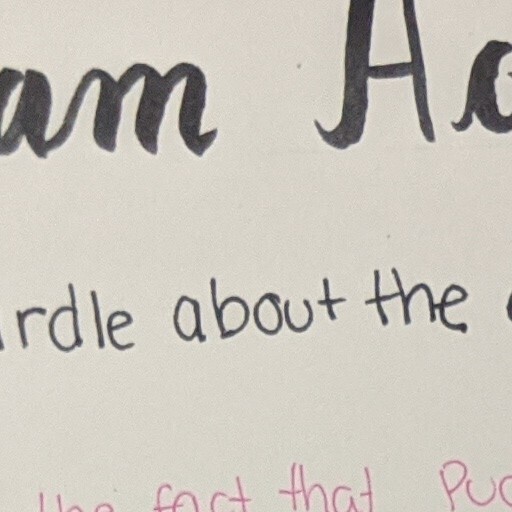 am Ha
rdle about the
the fact that Puc